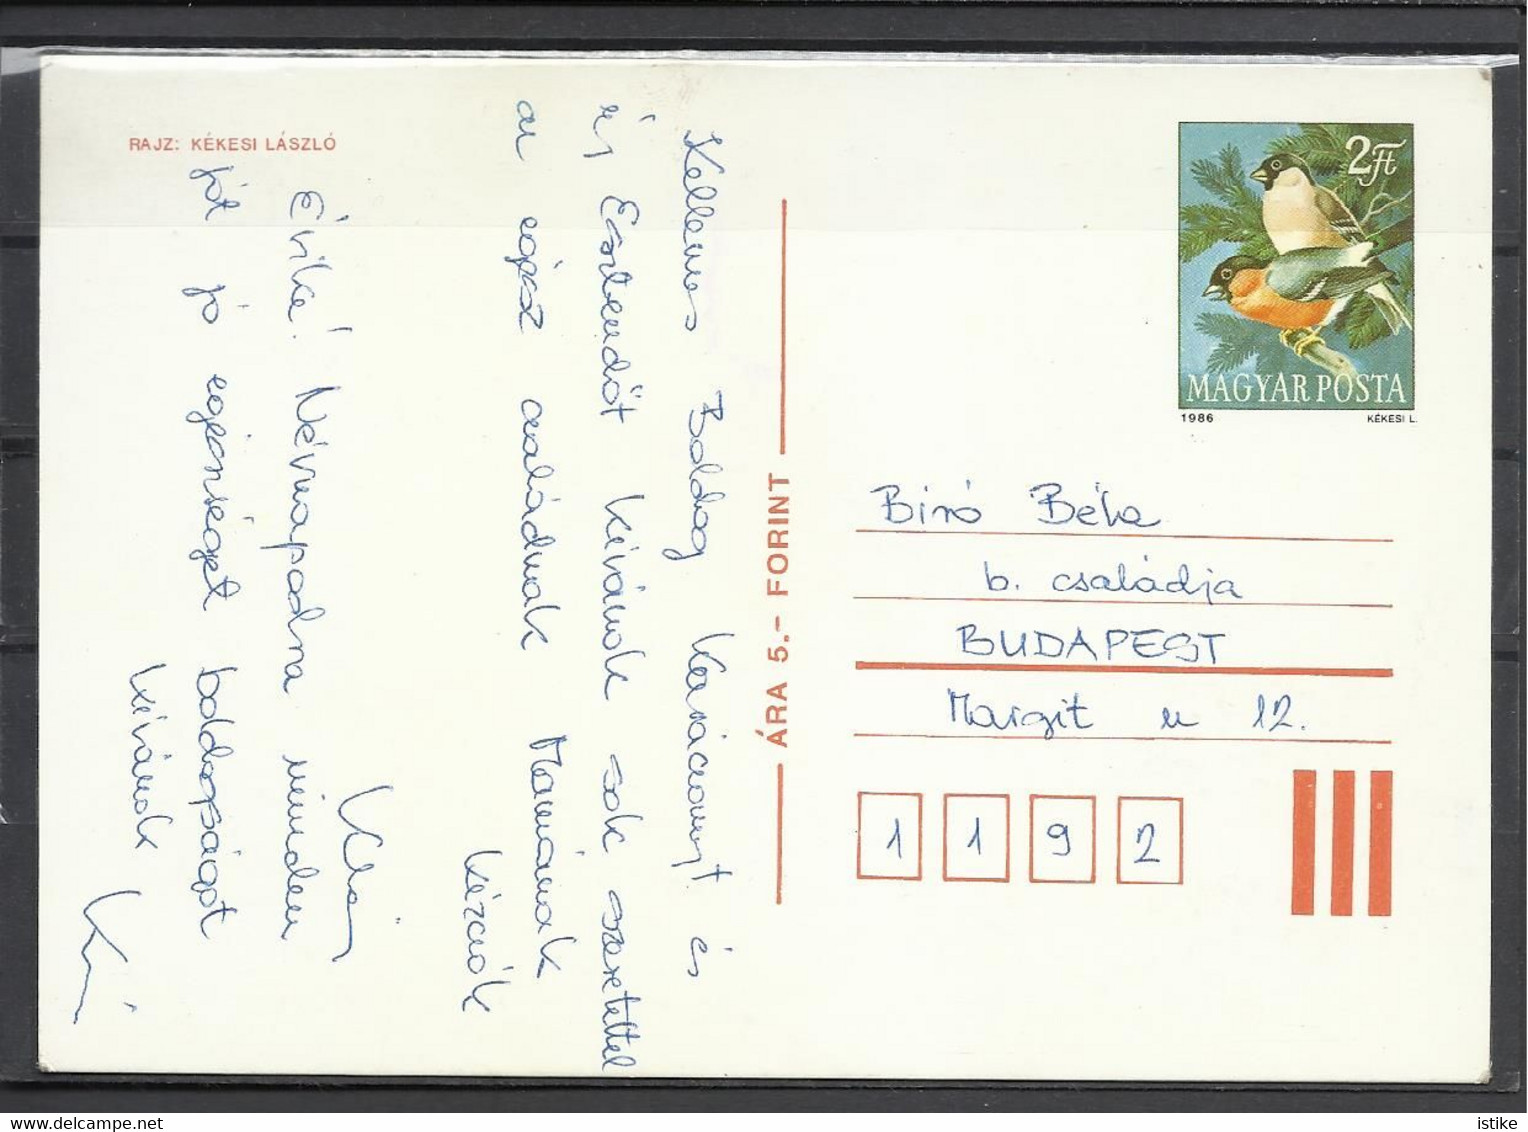 RAJZ: KÉKESI LÁSZLÓ
Kellemes Boldog Karácsonyt és
új Esztendőt Kívánok sok szeretettel
az egész családnak Mamának
Kézcsók
Évike! Névnapodra minden
jót jó egészséget boldogságot
kívánok
ÁRA 5.– FORINT
2 Ft
MAGYAR POSTA
1986 KÉKESI L.
Biró Béla
b. családja
BUDAPEST
Margit u 12.
1 1 9 2
delcampe.net
istike